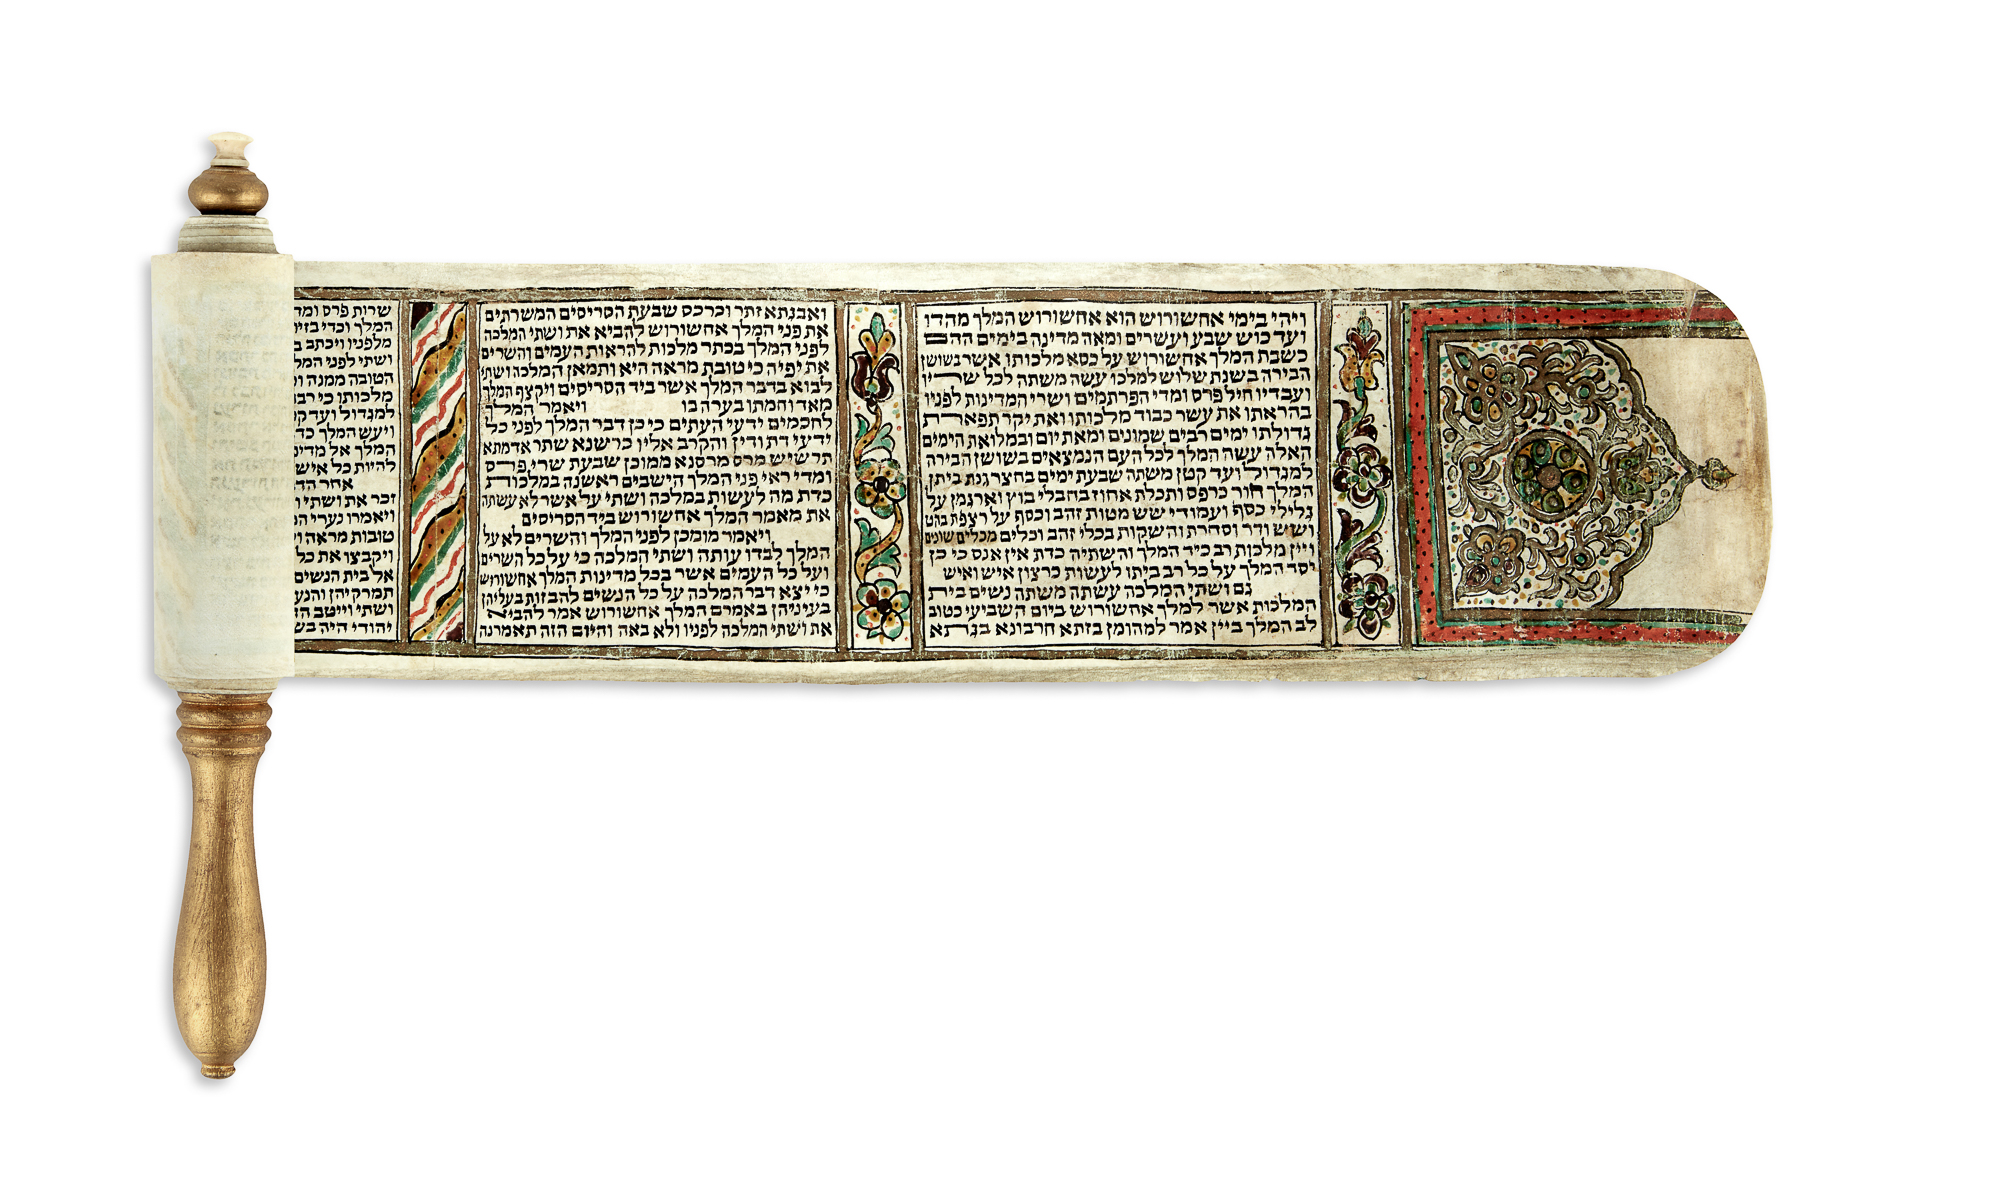 ויהי בימי אחשורוש הוא אחשורוש המלך מהדו
ועד כוש שבע ועשרים ומאה מדינה בימים ההם
כשבת המלך אחשורוש על כסא מלכותו אשר בשושן
הבירה בשנת שלוש למלכו עשה משתה לכל שריו
ועבדיו חיל פרס ומדי הפרתמים ושרי המדינות לפניו
בהראתו את עשר כבוד מלכותו ואת יקר תפארת
גדולתו ימים רבים שמונים ומאת יום ובמלואת הימים
האלה עשה המלך לכל העם הנמצאים בשושן הבירה
למגדול ועד קטן משתה שבעת ימים בחצר גנת ביתן
המלך חור כרפס ותכלת אחוז בחבלי בוץ וארגמן על
גלילי כסף ועמודי שש מטות זהב וכסף על רצפת בהט
ושש ודר וסחרת והשקות בכלי זהב וכלים מכלים שונים
ויין מלכות רב כיד המלך והשתיה כדת אין אנס כי כן
יסד המלך על כל רב ביתו לעשות כרצון איש ואיש
גם ושתי המלכה עשתה משתה נשים בית
המלכות אשר למלך אחשורוש ביום השביעי כטוב
לב המלך ביין אמר למהומן בזתא חרבונא בגתא
ואבגתא זתר וכרכס שבעת הסריסים המשרתים
את פני המלך אחשורוש להביא את ושתי המלכה
לפני המלך בכתר מלכות להראות העמים והשרים
את יפיה כי טובת מראה היא ותמאן המלכה ושתי
לבוא בדבר המלך אשר ביד הסריסים ויקצף המלך
מאד וחמתו בערה בו ויאמר המלך
לחכמים ידעי העתים כי כן דבר המלך לפני כל
ידעי דת ודין והקרב אליו כרשנא שתר אדמתא
תרשיש מרס מרסנא ממוכן שבעת שרי פרס
ומדי ראי פני המלך הישבים ראשנה במלכות
כדת מה לעשות במלכה ושתי על אשר לא עשתה
את מאמר המלך אחשורוש ביד הסריסים
ויאמר מומכן לפני המלך והשרים לא על
המלך לבדו עותה ושתי המלכה כי על כל השרים
ועל כל העמים אשר בכל מדינות המלך אחשורוש
כי יצא דבר המלכה על כל הנשים להבזות בעליהן
בעיניהן באמרם המלך אחשורוש אמר להביא
את ושתי המלכה לפניו ולא באה והיום הזה תאמרנה
שרות פרס ומדי
המלך וכדי בזיון
מלפניו ויכתב ב
ושתי לפני המל
הטובה ממנה ו
מלכותו כי רב
למגדול ועד ק
ויעש המלך כד
המלך אל מדינ
להיות כל איש
אחר הד
זכר את ושתי ו
ויאמרו נערי המ
טובות מראה וי
ויקבצו את כל
אל בית הנשים
תמרקיהן והנע
ושתי וייטב הד
יהודי היה בש